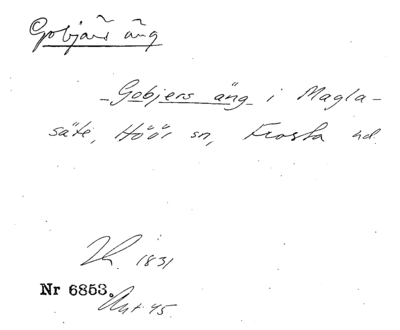 Gobjärs äng
Gobjers äng i Magla-
säte, Höör sn, Frosta hd.
1831
Nr 6853.
45.